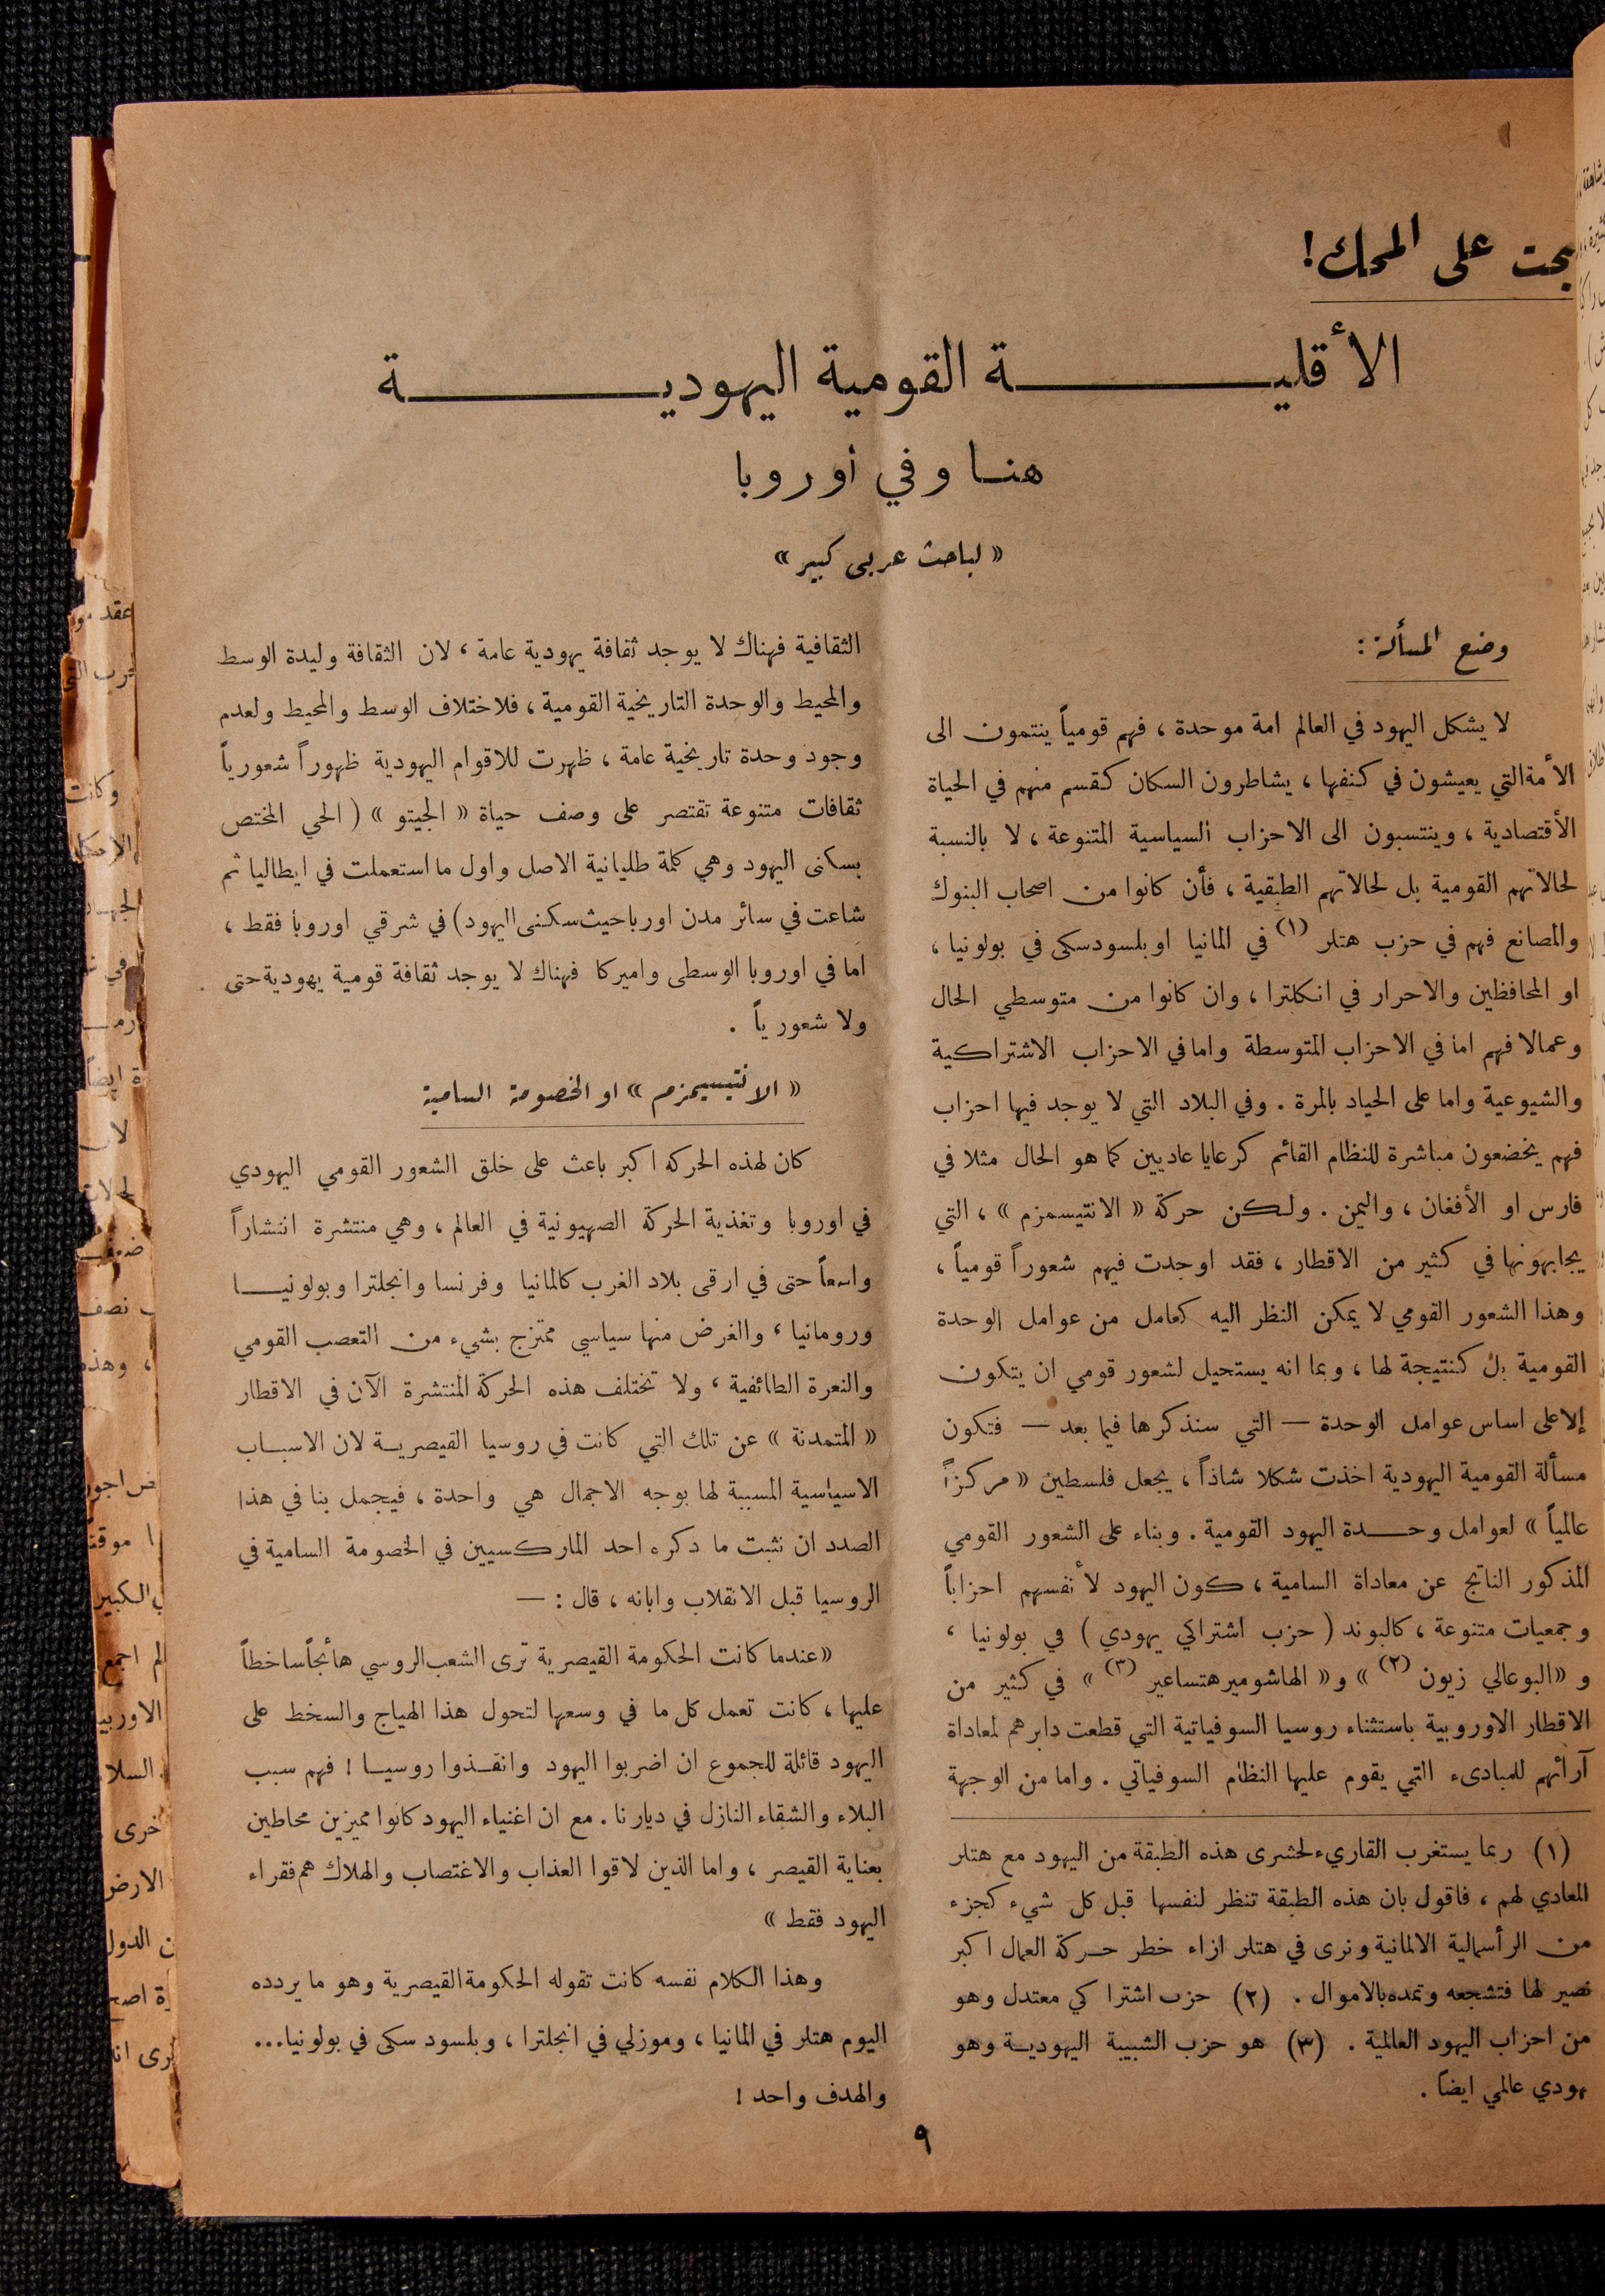 بحث على المحك!
الأقلية القومية اليهودية
هنا وفي اوروبا
« لباحث عربي كبير »
وضع المسألة :
لا يشكل اليهود في العالم امة موحدة ، فهم قومياً ينتمون الى
الأمة التي يعيشون في كنفها ، يشاطرون السكان كقسم منهم في الحياة
الأقتصادية ، وينتسبون الى الاحزاب السياسية المتنوعة ، لا بالنسبة
لحالاتهم القومية بل لحالاتهم الطبقية ، فأن كانوا من اصحاب البنوك
والمصانع فهم في حزب هتلر (١) في المانيا او بلسودسكى في بولونيا ،
او المحافظين والاحرار في انكلترا ، وان كانوا من متوسطي الحال
وعمالا فهم اما في الاحزاب المتوسطة واما في الاحزاب الاشتراكية
والشيوعية واما على الحياد بالمرة . وفي البلاد التي لا يوجد فيها احزاب
فهم يخضعون مباشرة للنظام القائم كرعايا عاديين كما هو الحال مثلا في
فارس او الأفغان ، واليمن . ولكن حركة « الانتيسمزم » ، التي
يجابهونها في كثير من الاقطار ، فقد اوجدت فيهم شعوراً قومياً ،
وهذا الشعور القومي لا يمكن النظر اليه كعامل من عوامل الوحدة
القومية بل كنتيجة لها ، وبما انه يستحيل لشعور قومي ان يتكون
إلا على اساس عوامل الوحدة — التي سنذكرها فيما بعد — فتكون
مسألة القومية اليهودية اخذت شكلا شاذاً ، يجعل فلسطين « مركزاً
عالمياً » لعوامل وحدة اليهود القومية . وبناء على الشعور القومي
المذكور الناتج عن معاداة السامية ، كون اليهود لأنفسهم احزاباً
وجمعيات متنوعة ، كالبوند ( حزب اشتراكي يهودي ) في بولونيا ،
و «البوعالي زيون (٢) » و « الهاشومير هتساعير (٣) » في كثير من
الاقطار الاوروبية باستثناء روسيا السوفياتية التي قطعت دابرهم لمعاداة
آرائهم للمبادىء التي يقوم عليها النظام السوفياتي . واما من الوجهة
(١) ربما يستغرب القاريء لحشرى هذه الطبقة من اليهود مع هتلر
المعادي لهم ، فاقول بان هذه الطبقة تنظر لنفسها قبل كل شيء كجزء
من الرأسمالية الالمانية ونرى في هتلر ازاء خطر حركة العمال اكبر
نصير لها فتشجعه وتمده بالاموال . (٢) حزب اشتراكي معتدل وهو
من احزاب اليهود العالمية . (٣) هو حزب الشبيبة اليهودية وهو
يهودي عالمي ايضاً .
الثقافية فهناك لا يوجد ثقافة يهودية عامة ، لان الثقافة وليدة الوسط
والمحيط والوحدة التاريخية القومية ، فلاختلاف الوسط والمحيط ولعدم
وجود وحدة تاريخية عامة ، ظهرت للاقوام اليهودية ظهوراً شعورياً
ثقافات متنوعة تقتصر على وصف حياة « الجيتو » ( الحي المختص
بسكنى اليهود وهي كلمة طليانية الاصل واول ما استعملت في ايطاليا ثم
شاعت في سائر مدن اوربا حيث سكنى اليهود) في شرقي اوروبا فقط ،
اما في اوروبا الوسطى واميركا فهناك لا يوجد ثقافة قومية يهودية حتى
ولا شعورياً .
« الانتيسيمزم » او الخصومة السامية
كان لهذه الحركه اكبر باعث على خلق الشعور القومي اليهودي
في اوروبا وتغذية الحركة الصهيونية في العالم ، وهي منتشرة انتشاراً
واسعاً حتى في ارقى بلاد الغرب كالمانيا وفرنسا وانجلترا وبولونيا
ورومانيا ، والغرض منها سياسي ممتزج بشيء من التعصب القومي
والنعرة الطائفية ، ولا تختلف هذه الحركة المنتشرة الآن في الاقطار
« المتمدنة » عن تلك التي كانت في روسيا القيصرية لان الاسباب
الاسياسية المسببة لها بوجه الاجمال هي واحدة ، فيجمل بنا في هذا
الصدد ان نثبت ما ذكره احد الماركسيين في الخصومة السامية في
الروسيا قبل الانقلاب وابانه ، قال : —
« عندما كانت الحكومة القيصرية ترى الشعب الروسي هائجاً ساخطاً
عليها ، كانت تعمل كل ما في وسعها لتحول هذا الهياج والسخط على
اليهود قائلة للجموع ان اضربوا اليهود وانقذوا روسيا ! فهم سبب
البلاء والشقاء النازل في ديارنا . مع ان اغنياء اليهود كانوا مميزين محاطين
بعناية القيصر ، واما الذين لاقوا العذاب والاغتصاب والهلاك هم فقراء
اليهود فقط »
وهذا الكلام نفسه كانت تقوله الحكومة القيصرية وهو ما يردده
اليوم هتلر في المانيا ، وموزلي في انجلترا ، وبلسودسكى في بولونيا...
والهدف واحد !
٩